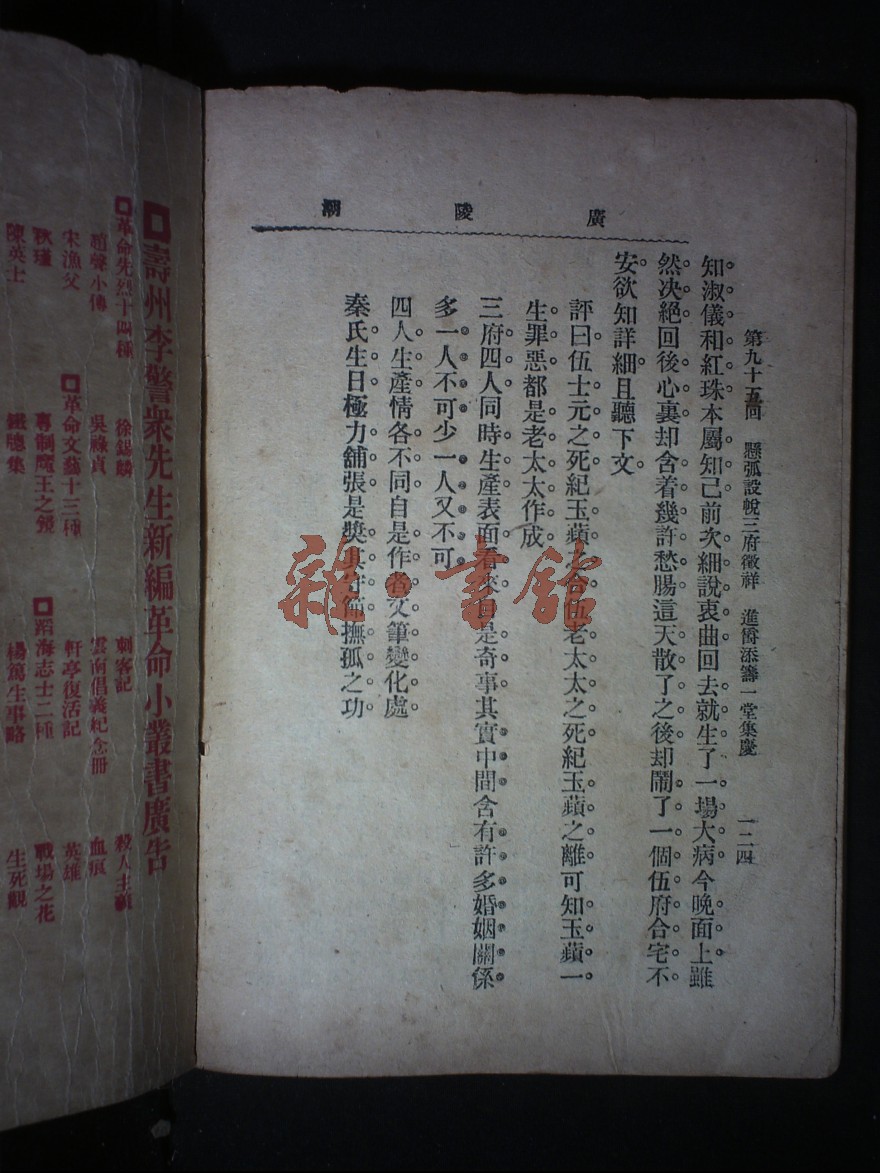 廣陵潮
第九十五回 懸弧設帨三府徵祥 進爵添籌一堂集慶 一二四
知淑儀和紅珠本屬知己前次細說衷曲回去就生了一場大病今晚面上雖
然決絕回後心裏却含着幾許愁腸這天散了之後却鬧了一個伍府合宅不
安欲知詳細且聽下文
評曰伍士元之死紀玉蘋之合伍老太太之死紀玉蘋之離可知玉蘋一
生罪惡都是老太太作成
三府四人同時生產表面看來自是奇事其實中間含有許多婚姻關係
多一人不可少一人又不可
四人生產情各不同自是作者文筆變化處
秦氏生日極力舖張是獎其守節撫孤之功
雜·書館
壽州李警衆先生新編革命小叢書廣告
革命先烈十四種 徐錫麟 刺客記 殺人主義
趙聲小傳 吳祿貞 雲南倡義紀念冊 血痕
宋漁父 革命文藝十三種 軒亭復活記 英雄
秋瑾 專制魔王之鏡 蹈海志士二種 戰場之花
陳英士 鐵聰集 楊篤生事略 生死觀